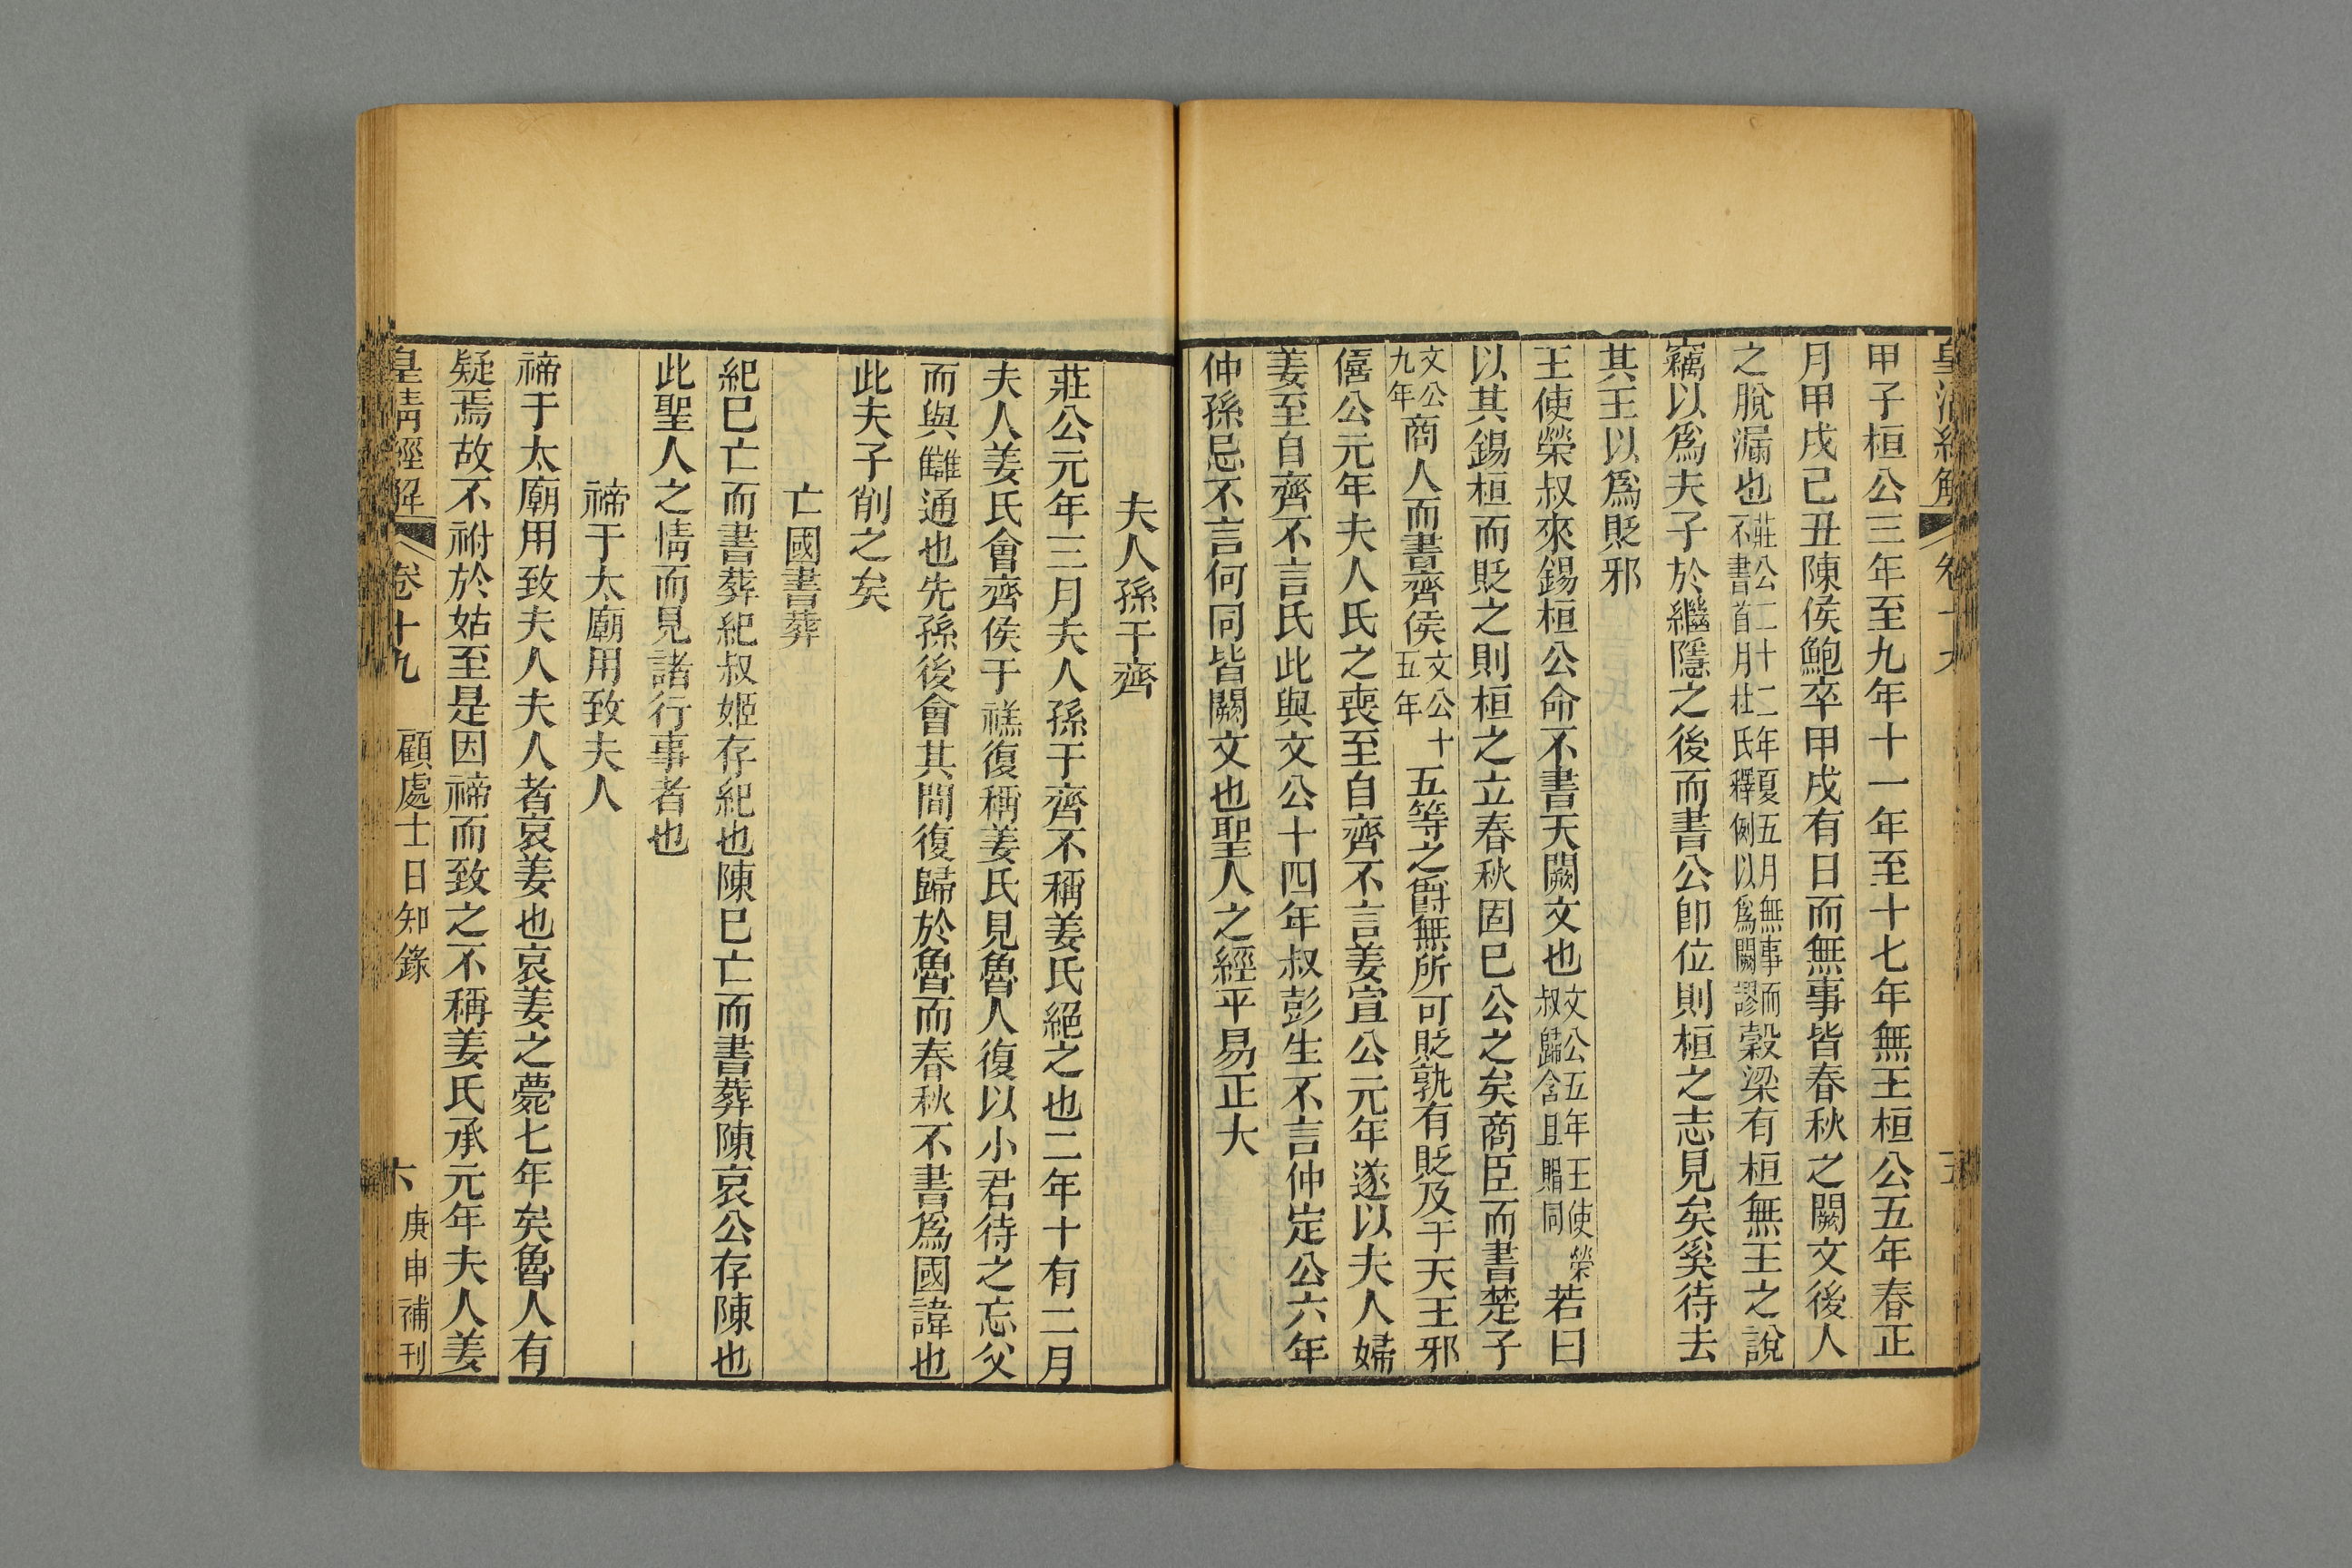 甲子桓公三年至九年十一年至十七年無王桓公五年春正
月甲戌己丑陳侯鮑卒甲戌有日而無事皆春秋之闕文後人
之脫漏也莊公二十二年夏五月無事而不書首月杜氏釋例以爲闕謬穀梁有桓無王之說
竊以爲夫子於繼隱之後而書公卽位則桓之志見矣奚待去
其王以爲貶邪
王使榮叔來錫桓公命不書天闕文也文公五年王使榮叔歸含且賵同若曰
以其錫桓而貶之則桓之立春秋固已公之矣商臣而書楚子
文公九年商人而書齊侯文公十五年五等之爵無所可貶孰有貶及于天王邪
僖公元年夫人氏之喪至自齊不言姜宣公元年遂以夫人婦
姜至自齊不言氏此與文公十四年叔彭生不言仲定公六年
仲孫忌不言何同皆闕文也聖人之經平易正大
夫人孫于齊
莊公元年三月夫人孫于齊不稱姜氏絕之也二年十有二月
夫人姜氏會齊侯于禚復稱姜氏見魯人復以小君待之忘父
而與讎通也先孫後會其間復歸於魯而春秋不書爲國諱也
此夫子削之矣
亡國書葬
紀已亡而書葬紀叔姬存紀也陳已亡而書葬陳哀公存陳也
此聖人之情而見諸行事者也
禘于太廟用致夫人
禘于太廟用致夫人夫人者哀姜也哀姜之薨七年矣魯人有
疑焉故不祔於姑至是因禘而致之不稱姜氏承元年夫人姜
皇清經解 卷十九 顧處士日知錄 六 庚申補刊